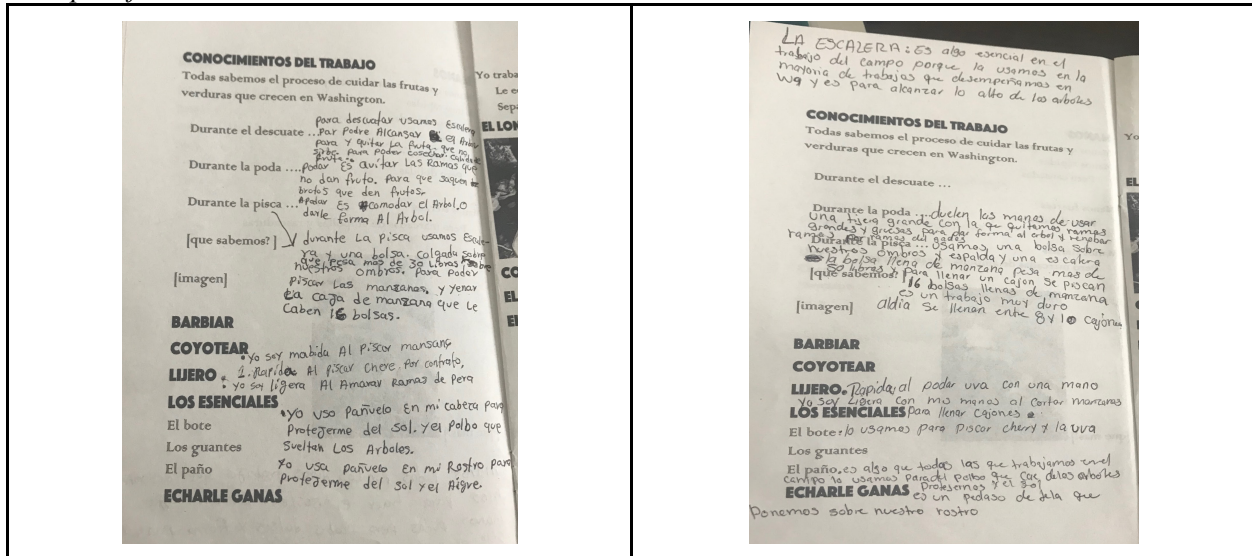 CONOCIMIENTOS DEL TRABAJO
Todas sabemos el proceso de cuidar las frutas y
verduras que crecen en Washington.
para descuatar usamos Escalera
Durante el descuate ... Par Podre Alcansar el Arbol
para y quitar La fruta. que no
sirbe. Para Poder cosechar. Calidad
fruta.
Durante la poda .... Podar Es quitar Las Ramas que
no dan fruto. Para que saquen
brotos que den frutos.
Durante la pisca ... Apodar Es acomodar el Arbol.o
darle forma Al Arbol.
[que sabemos?] durante La Pisca usamos Escale-
ra y una bolsa. colgada sobre
que pesa mas de 30 libras sobre
nuestros ombros. Para Poder
[imagen] Piscar Las manzanas. y Yenar
La caja de manzana que Le
Caben 16 bolsas.
BARBIAR
COYOTEAR
Yo soy mabida Al Piscar mansana
LIJERO . 1. Rapida Al Piscar Chere. Por contrato,
. Yo soy ligera Al Amarar Ramas de Pera
LOS ESENCIALES
.Yo uso Pañuelo En mi cabeza Para
El bote Protejerme del Sol. Y el Polbo que
Los guantes Sueltan Los Arboles.
El paño Yo usa Pañuelo En mi Rostro Para
Protejerme del Sol y el Aigre.
ECHARLE GANAS
Yo traba
Le e
Sep
EL LO
CO
EL
LA ESCALERA: Es algo esencial en el
trabajo del campo porque la usamos en la
mayoria de trabajos que desempeñamos en
Wa y es para alcanzar lo alto de los arboles
CONOCIMIENTOS DEL TRABAJO
Todas sabemos el proceso de cuidar las frutas y
verduras que crecen en Washington.
Durante el descuate ...
Durante la poda ... duelen las manos de usar
una tijera grande con la que quitamos ramas
grandes y gruesas para dar forma al arbol y renobar
ramas
Durante la pisca ... Usamos, una bolsa sobre
nuestros ombros y espalda y una escalera
la bolsa llena de manzana pesa mas de
50 libras y para llenar un cajon se piscan
[que sabemos?] 16 bolsas llenas de manzana
es un trabajo muy duro
[imagen] aldia se llenan entre 8 y 10 cajones
BARBIAR
COYOTEAR
LIJERO. Rapida, al podar uva con una mano
Yo Soy Ligera con mis manos al cortar manzanas
LOS ESENCIALES para llenar cajones
El bote: lo usamos para piscar cherry y la uva
Los guantes
El paño. es algo que todas las que trabajamos en el
campo lo usamos para el polbo que cae delos arboles
Protejernos y el sol
ECHARLE GANAS es un pedaso de tela que
Ponemos sobre nuestro rostro
Yo
EL